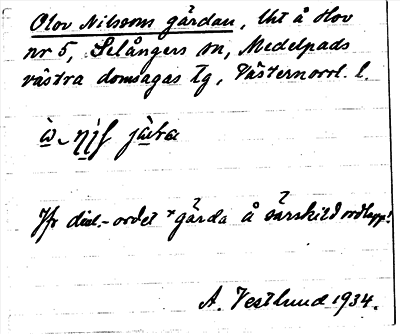 Olov Nilsons gärdan, Uht å Hov
nr 5, Selångers sn, Medelpads
västra domsagas tg, Västernorrl. l.
Jfr dial.-ordet gärda å särskild ordlapp!
A. Vestlund 1934.